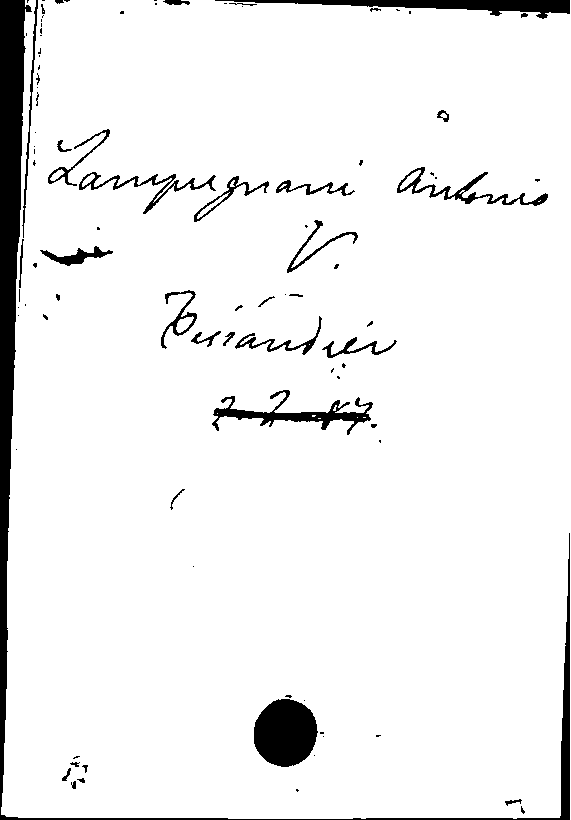 Lampugnani Antonio
V.
Tisandier
2. 2. 87.